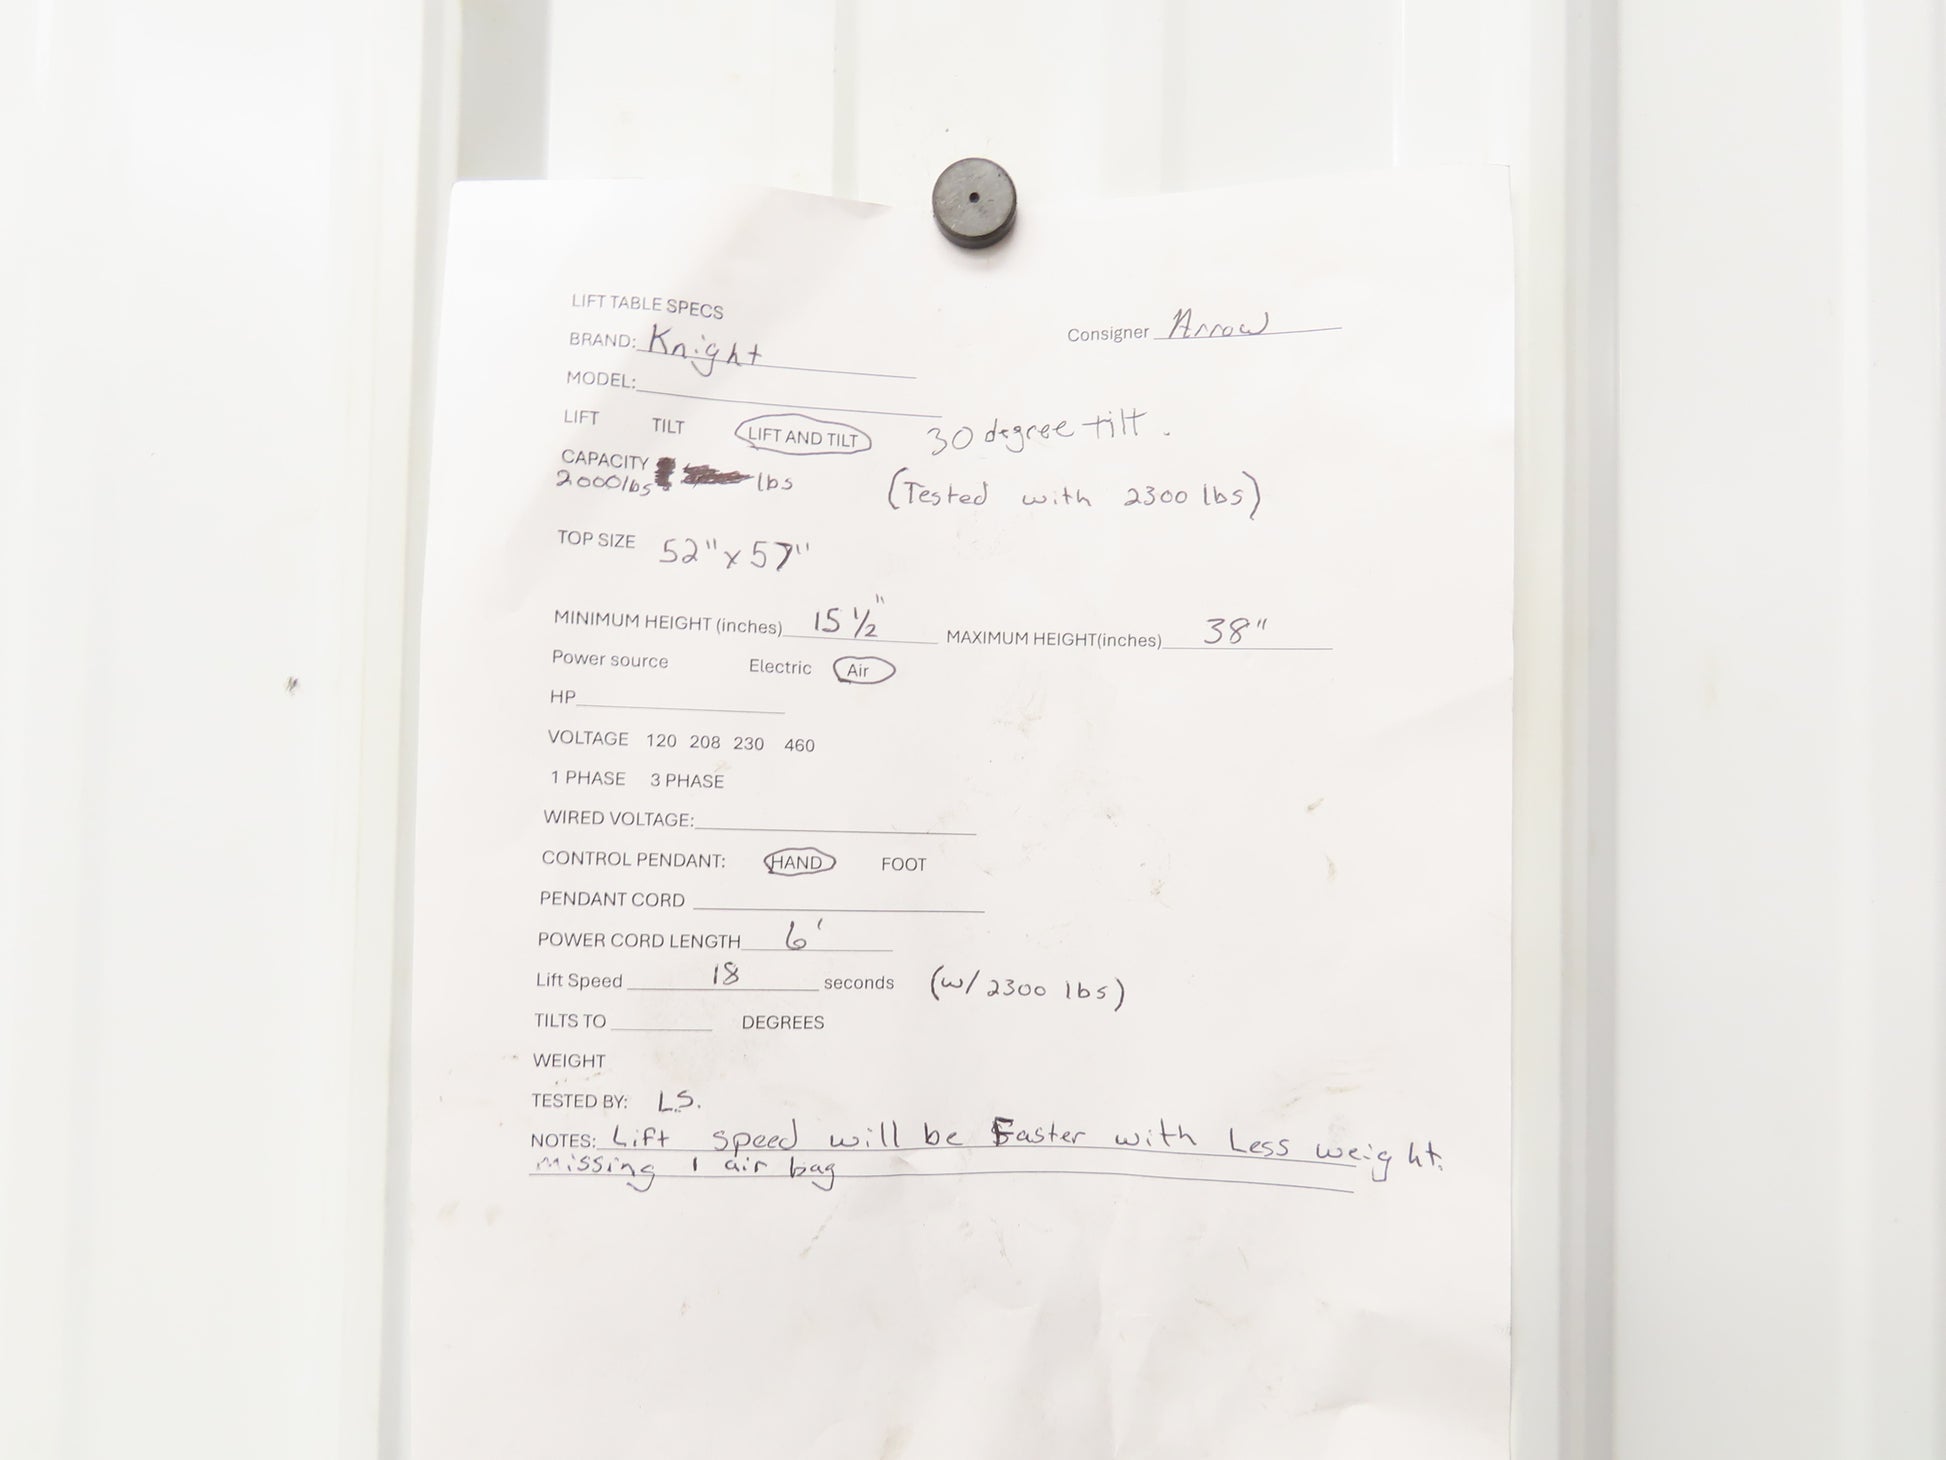 LIFT TABLE SPECS
BRAND: Knight
Consigner Arrow
MODEL:
LIFT TILT LIFT AND TILT 30 degree tilt.
CAPACITY lbs
2000lbs
(Tested with 2300 lbs)
TOP SIZE 52" x 57"
MINIMUM HEIGHT (inches) 15 1/2" MAXIMUM HEIGHT(inches) 38"
Power source Electric Air
HP
VOLTAGE 120 208 230 460
1 PHASE 3 PHASE
WIRED VOLTAGE:
CONTROL PENDANT: HAND FOOT
PENDANT CORD
POWER CORD LENGTH 6'
Lift Speed 18 seconds (w/ 2300 lbs)
TILTS TO DEGREES
WEIGHT
TESTED BY: L.S.
NOTES: Lift speed will be Faster with Less weight.
missing 1 air bag